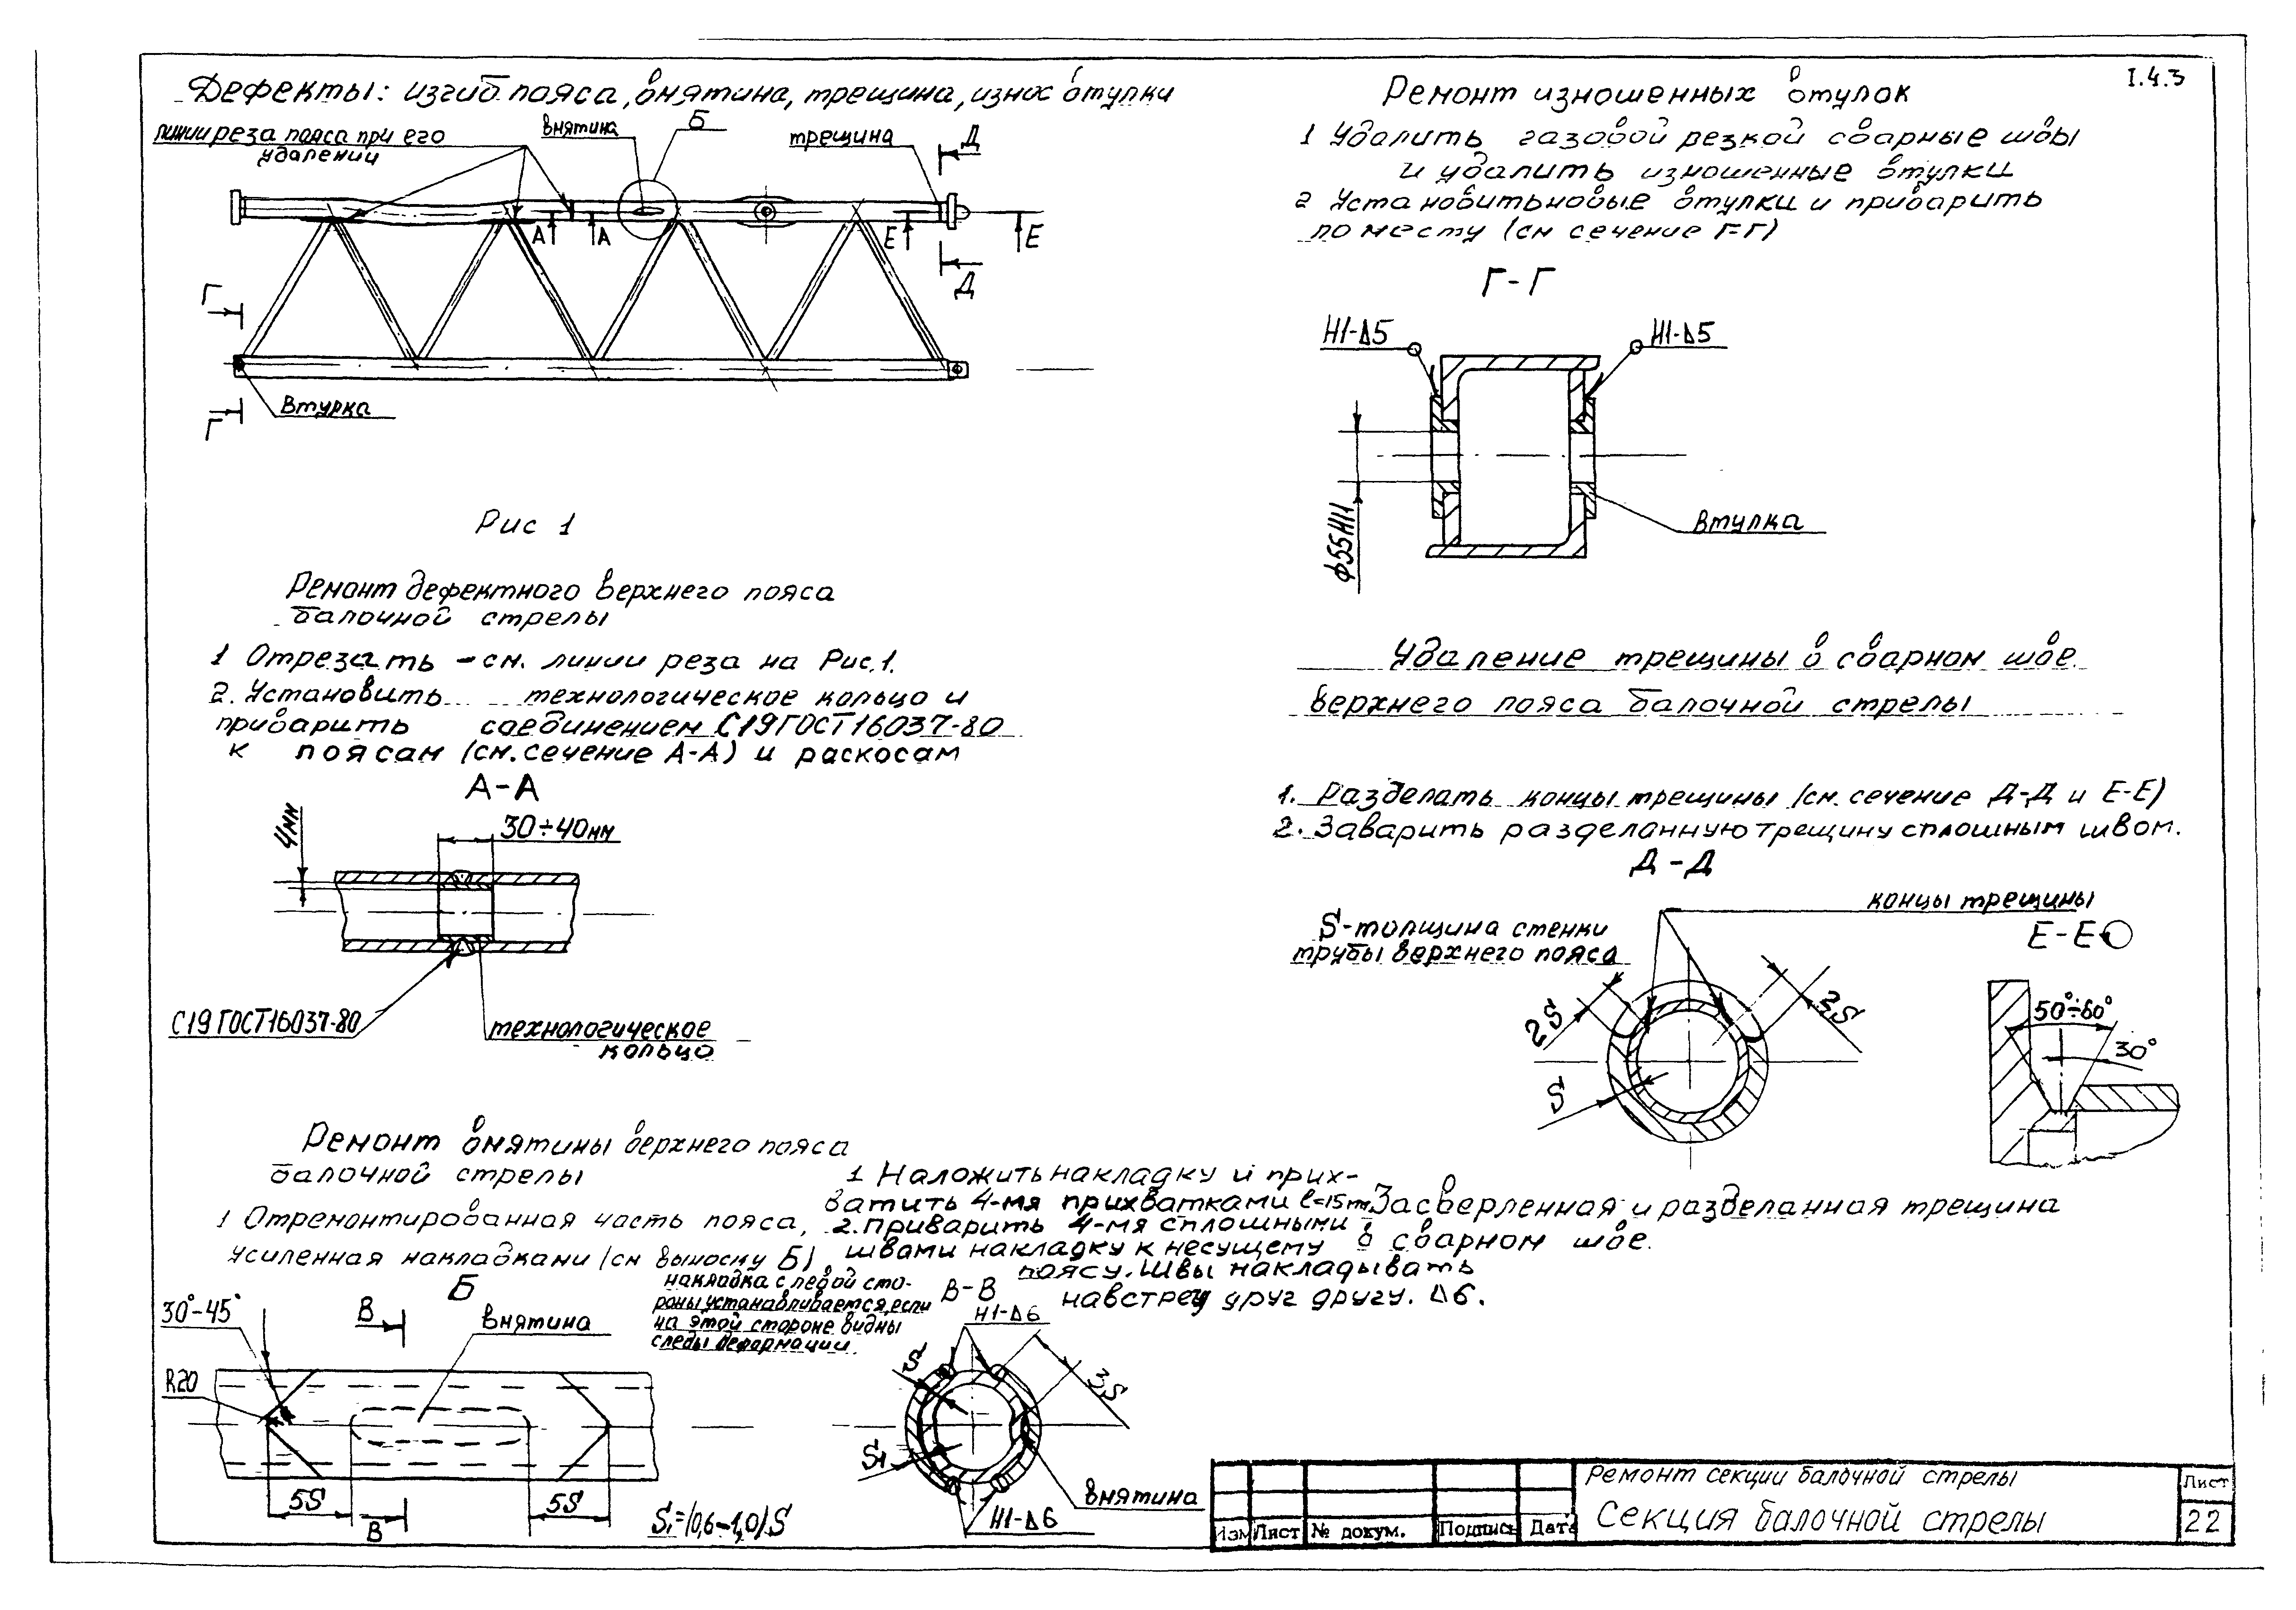 Дефекты: изгиб пояса, внятина, трещина, износ втулки
линии реза пояса при его
удалении
внятина
Б
трещина
Д
А
А
Е
Е
Д
Г
Г
Втурка
Рис 1
Ремонт дефектного верхнего пояса
балочной стрелы
1 Отрезать - см. линии реза на Рис.1.
2. Установить технологическое кольцо и
приварить соединением С19 ГОСТ 16037-80
к поясам (см. сечение А-А) и раскосам
А-А
4мм
30÷40мм
С19 ГОСТ16037-80
технологическое
кольцо
Ремонт внятины верхнего пояса
балочной стрелы
1 Отремонтированная часть пояса,
усиленная накладками (см выноску Б)
Б
30°-45°
В
внятина
R20
5S
В
5S
S₁=(0,6-1,0)S
накладка с левой сто-
роны устанавливается, если
на этой стороне видны
следы деформации.
1 Наложить накладку и прих-
ватить 4-мя прихватками ℓ=15мм
2. приварить 4-мя сплошными
швами накладку к несущему
поясу. Швы накладывать
навстречу друг другу. Δ6.
В-В
Н1-Δ6
S
3S
S₁
внятина
Н1-Δ6
I.4.3
Ремонт изношенных втулок
1 Удалить газовой резкой сварные швы
и удалить изношенные втулки
2 Установить новые втулки и приварить
по месту (см сечение Г-Г)
Г-Г
Н1-Δ5
Н1-Δ5
ф55Н11
втулка
Удаление трещины в сварном шве
верхнего пояса балочной стрелы
1. Разделать концы трещины (см. сечение Д-Д и Е-Е)
2. Заварить разделанную трещину сплошным швом.
Д-Д
концы трещины
S-толщина стенки
трубы верхнего пояса
Е-Е
2S
2S
S
50°÷60°
30°
Засверленная и разделанная трещина
в сварном шве.
Ремонт секции балочной стрелы
Секция балочной стрелы
Лист
22
Изм Лист № докум. Подпись Дата